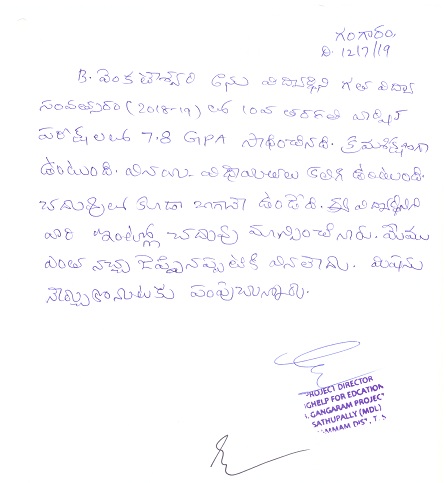 గంగారం,
ది. 12/7/19
B. వెంకటేశ్వరి అను విద్యార్థిని గత విద్యా
సంవత్సరం (2018-19) లో 10వ తరగతి వార్షిక
పరీక్షలలో 7.8 GPA సాధించినది. క్రమశిక్షణగా
ఉంటుంది. వినయ విధేయతలు కలిగి ఉంటుంది.
చదువులో కూడా బాగానే ఉండేది. విద్యార్థినిని
వారి ఇంటివాళ్ళు చదువు మాన్పించినారు. మేము
ఎంత నచ్చ చెప్పినప్పటికి వినలేదు. మిషను
నేర్చుకొనుటకు పంపుచున్నారు.
PROJECT DIRECTOR
GHELP FOR EDCATION
GANGARAM PROJEC
SATHUPALLY (MDL)
MMAM DIST. T.S